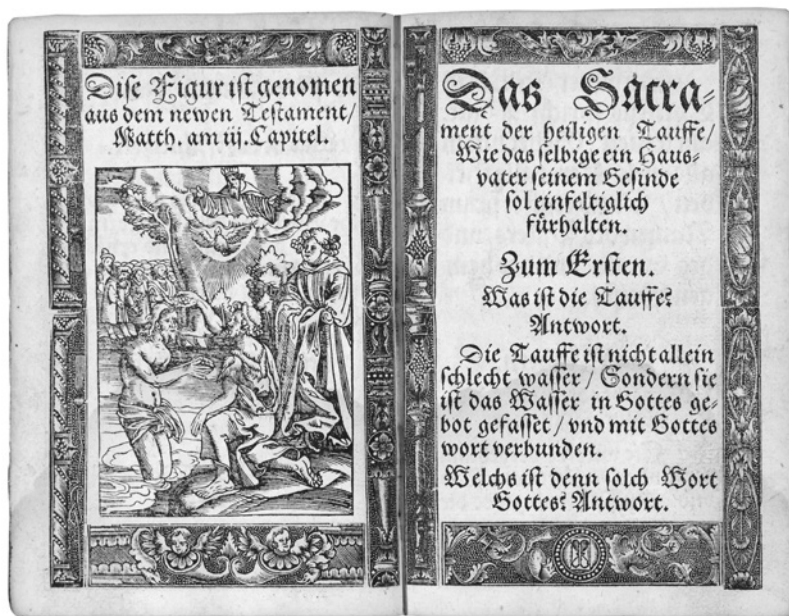 Dise Figur ist genomen
aus dem newen Testament/
Matth. am iij. Capitel.
Das Sacra-
ment der heiligen Tauffe/
Wie das selbige ein Haus-
vater seinem Gesinde
sol einfeltiglich
fürhalten.
Zum Ersten.
Was ist die Tauffe?
Antwort.
Die Tauffe ist nicht allein
schlecht wasser/ Sondern sie
ist das Wasser in Gottes ge-
bot gefasset/ vnd mit Gottes
wort verbunden.
Welchs ist denn solch Wort
Gottes? Antwort.